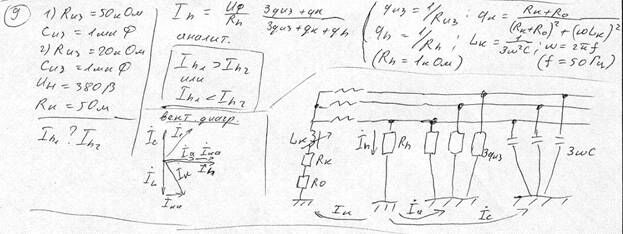 9
1) Rиз = 50кОм
Сиз = 1мкФ
2) Rиз = 20кОм
Сиз = 1мкФ
Uн = 380В
Rк = 50м
Ih1 ? Ih2
Ih = Uф/Rh
3gиз + gк
3gиз + gк + gh
аналит.
Ih1 > Ih2
или
Ih1 < Ih2
вект. диагр.
gиз = 1/Rиз; gк = Rк + R0 / (Rк + R0)² + (ωLк)²
gh = 1/Rh; Lк = 1/3ω²C; ω = 2πf
(Rh = 1кОм) (f = 50Гц)
İc
İa
İка
İh
İк
İL
İка
Lк
Rк
R0
İh
Rh
3gиз
3ωC
İк
İa
İc